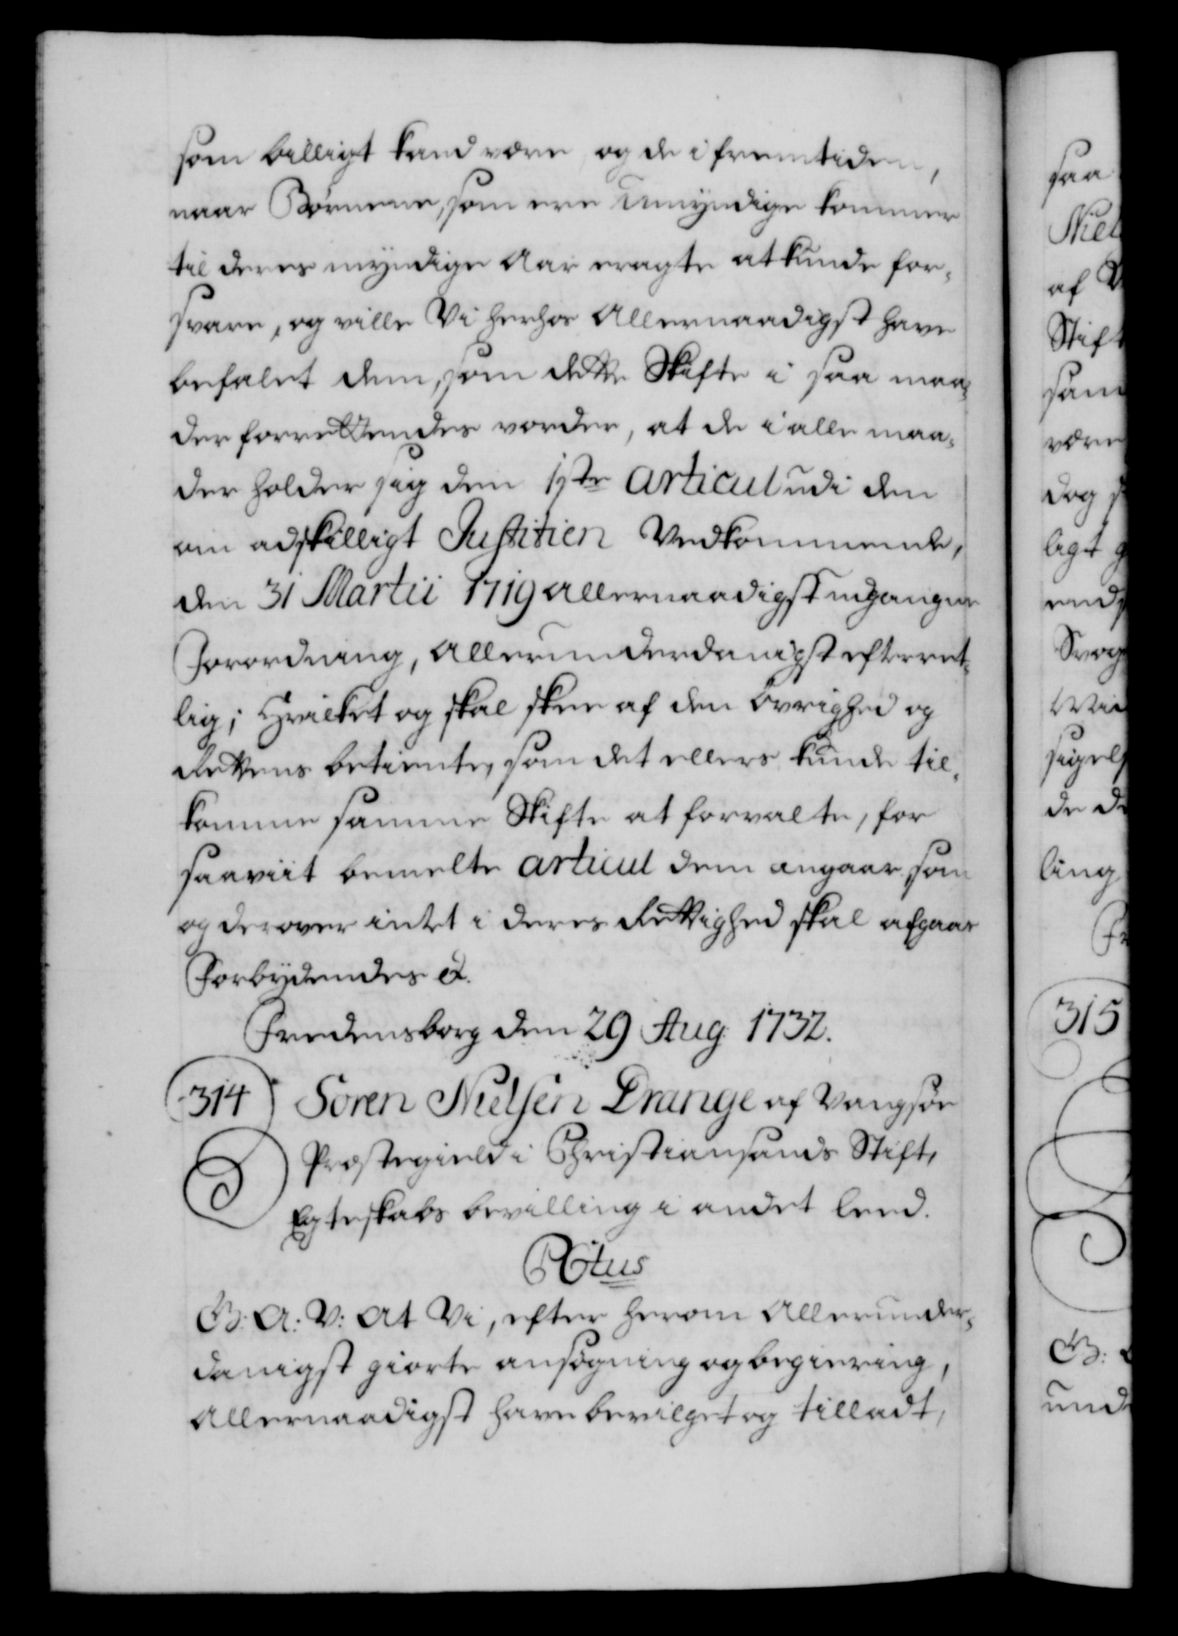 som billigt kand være, og de i fremtiden,
naar Børnene, som ere Umyndige kommer
til deres myndige Aar eragte at kunde for,
svare, og ville Vi herhos Allernaadigst have
befalet dem, som dette Skifte i saa maa,
der forrettendes vorder, at de i alle maa,
der holder sig den 1ste Articul udi den
om adskilligt Justitien Vedkommende,
den 31 Martii 1719 Allernaadigst udgangne
Forordning, Allerunderdanigst efterret,
lig; Hvilket og skal skee af den Øvrighed og
Rettens betiente, som det ellers kunde til,
komme samme Skifte at forvalte, for
saaviit bemelte Articul dem angaar som
og derover intet i deres Rettighed skal afgaar
Forbydendes &.
Fredensborg den 29 Aug 1732.
314 Søren Nielsen Drange af
Præstegield i Christiansands Stift,
Egteskabs bevilling i andet leed.
G: A: V: At Vi, efter herom Allerunder,
danigst giorte ansøgning og begiering,
Allernaadigst have bevilget og tilladt,
saa
Niel
af
Stift
sam
være
dog
ligt
Svog
sigel
de
ling
315
G:
und